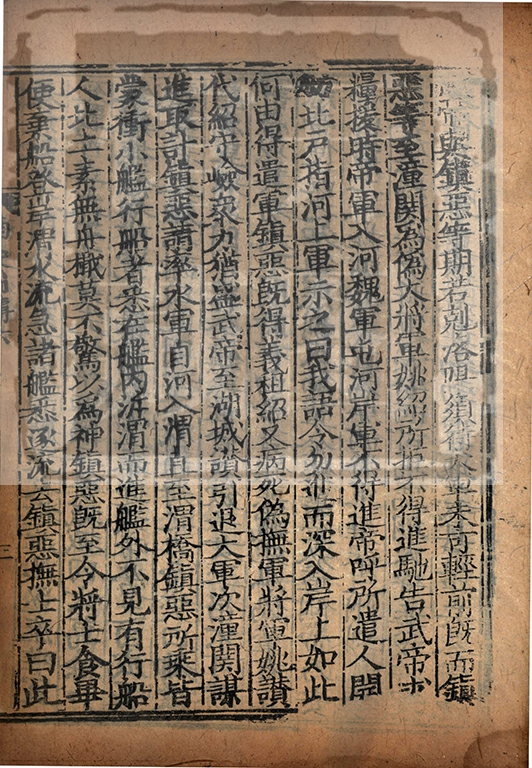 武帝與鎮惡等期若剋洛陽須待大軍未可輕前旣而鎮
惡等至潼關爲僞大將軍姚紹所拒不得進馳告武帝求
糧援時帝軍入河魏軍屯河岸軍不得進帝呼所遣人開
舫北戶指河上軍示之曰我語令勿進而深入岸上如此
何由得遣軍鎮惡旣得義租紹又病死僞撫軍將軍姚讚
代紹守嶮衆力猶盛武帝至湖城讚引退大軍次潼關謀
進取計鎮惡請率水軍自河入渭直至渭橋鎮惡所乘皆
蒙衝小艦行船者悉在艦內泝渭而進艦外不見有行船
人北土素無舟檝莫不驚以爲神鎮惡旣至令將士食畢
便棄船登岸渭水流急諸艦悉逐流去鎮惡撫士卒曰此